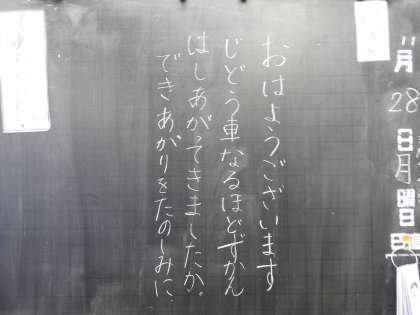 11月28日月曜日
おはようございます
じどう車なるほどずかん
はしあがってきましたか。
できあがりをたのしみに、